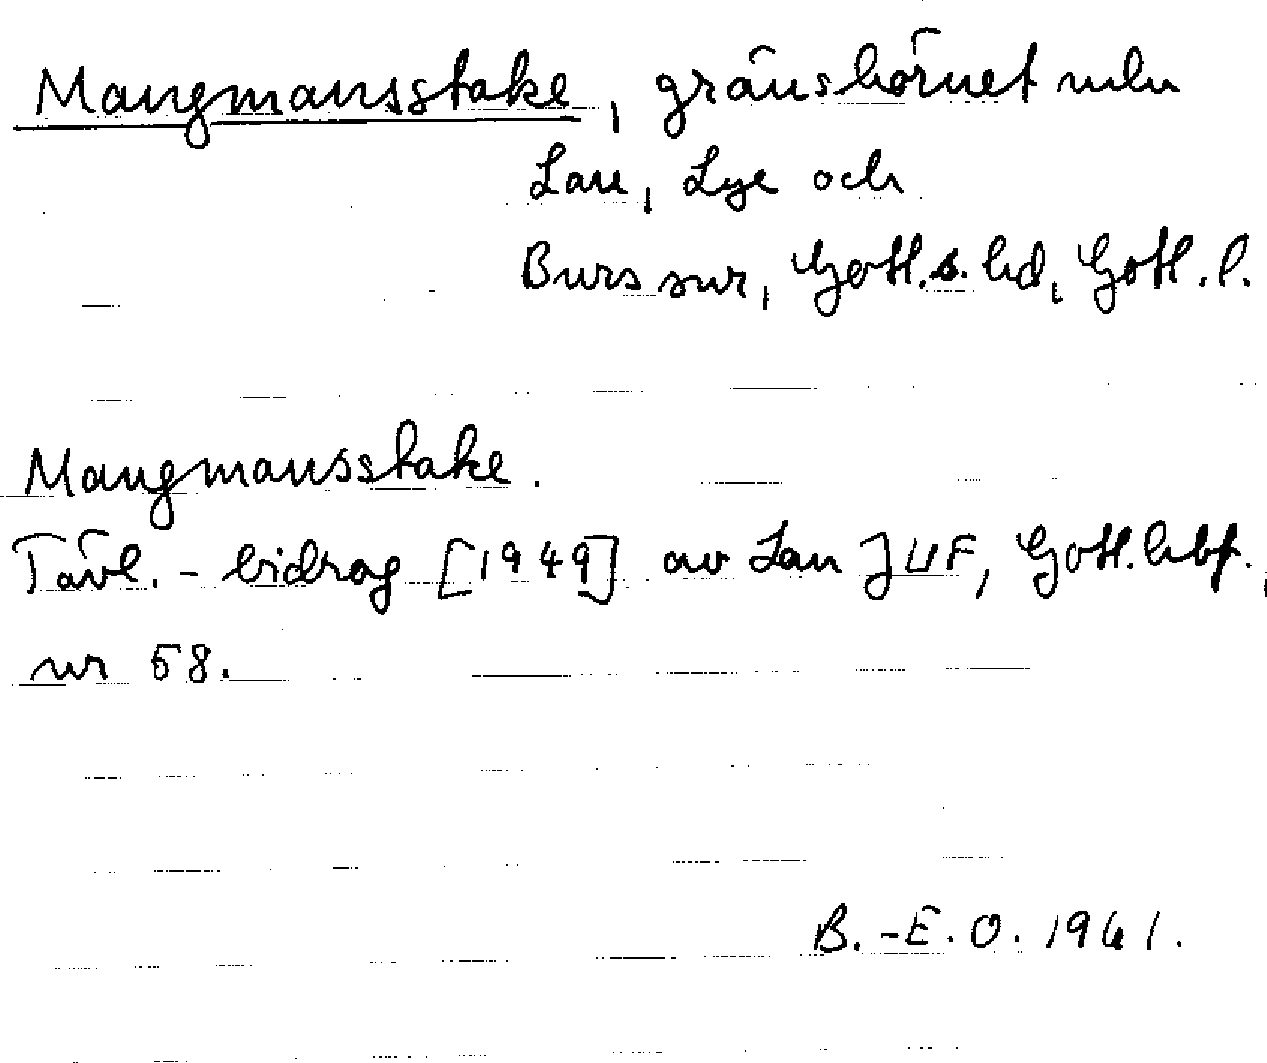 Mangmansstake, gränshörnet mln
Lau, Lye och
Burs snr, Gotl.s. hd, Gotl. l.
Mangmansstake.
Tävl.-bidrag [1949] av Lau JUF, Gotl. hbf.,
nr 58.
B.-E.O. 1961.